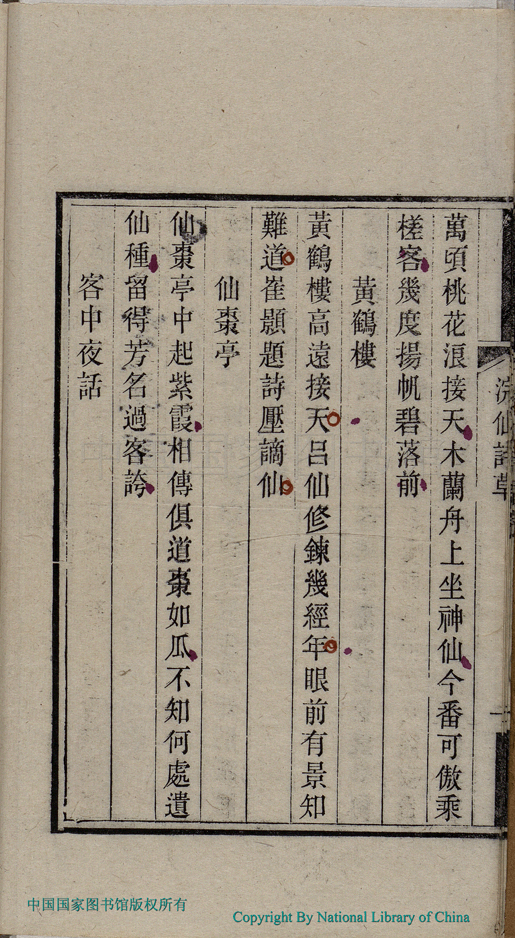 浣仙詩草
萬頃桃花浪接天木蘭舟上坐神仙今番可傲乘
槎客幾度揚帆碧落前
黃鶴樓
黃鶴樓高遠接天呂仙修鍊幾經年眼前有景知
難道崔顥題詩壓謫仙
仙棗亭
仙棗亭中起紫霞相傳俱道棗如瓜不知何處遺
仙種留得芳名過客誇
客中夜話
中国国家图书馆版权所有
Copyright By National Library of China